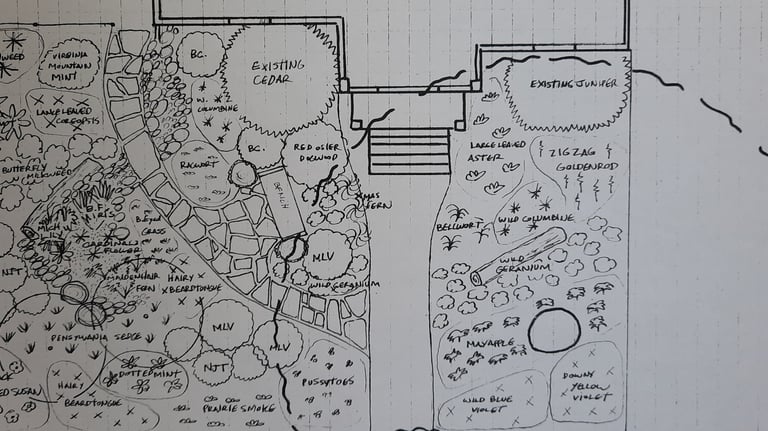 WEED
VIRGINIA
MOUNTAIN
MINT
LANCE LEAVED
COREOPSIS
BUTTERFLY
MILKWEED
B.F.
IRIS
MICH
LILY
CARDINAL
FLOWER
B. EYED
GRASS
MAIDENHAIR
FERN
HAIRY
BEARDTONGUE
NJT
PENSYLVANIA SEDGE
HAIRY
BEARDTONGUE
DOTTED MINT
MLV
NJT
MLV
PRAIRIE SMOKE
PUSSYTOES
B.C.
W.
COLUMBINE
EXISTING
CEDAR
RAGWORT
B.C.
RED OSIER
DOGWOOD
BENCH
XMAS
FERN
MLV
WILD GERANIUM
EXISTING JUNIPER
LARGE LEAVED
ASTER
ZIG ZAG
GOLDENROD
BELLWORT
WILD COLUMBINE
WILD
GERANIUM
MAYAPPLE
WILD BLUE
VIOLET
DOWNY
YELLOW
VIOLET